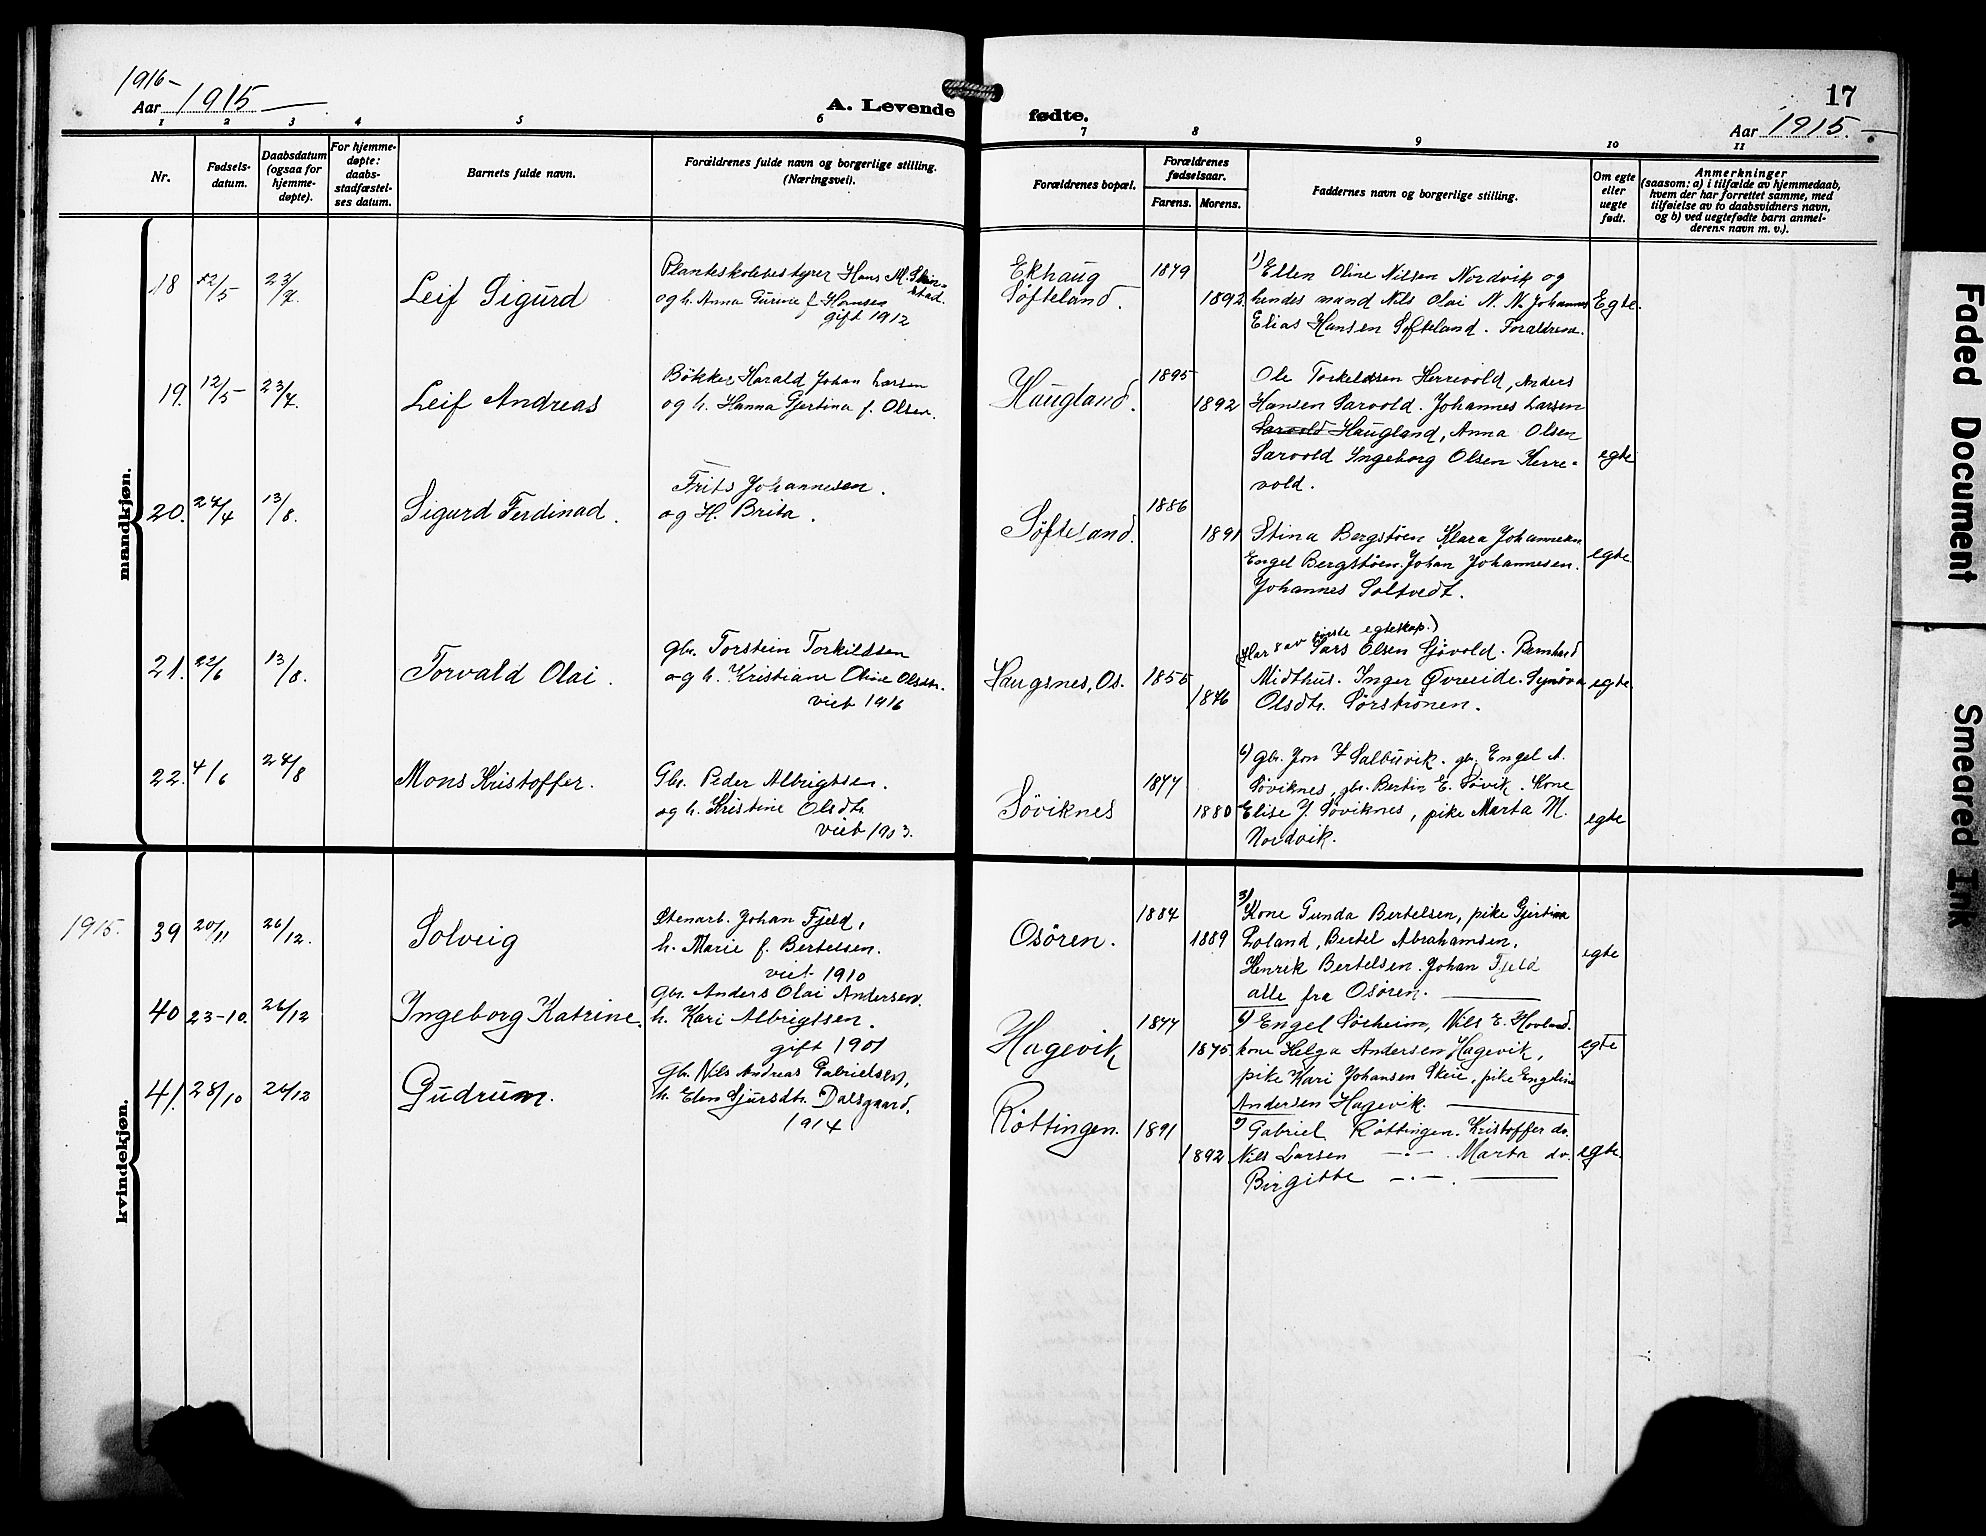 1916-
Aar 1915
A. Levende
fødte.
17
Aar 1915
1 2 3 4 5 6 7 8 9 10 11
Nr.
Fødsels-
datum.
Daabsdatum
(ogsaa for
hjemme-
døpte).
For hjemme-
døpte:
daabs-
stadfæstel-
ses datum.
Barnets fulde navn.
Forældrenes fulde navn og borgerlige stilling.
(Næringsvei).
Forældrenes bopæl.
Forældrenes
fødselsaar.
Farens. Morens.
Faddernes navn og borgerlige stilling.
Om egte
eller
uegte
født.
Anmerkninger
(saasom: a) i tilfælde av hjemmedaab,
hvem der har forrettet samme, med
tilføielse av to daabsvidners navn,
og b) ved uegtefødte barn anmel-
derens navn m. v.).
mandkjøn.
18
23/7
Leif Sigurd
Planteskolebestyrer Hans M.
og h. Anna Gurine f.
gift 1912
Ekhaug
Søfteland.
1879
1892
1) Ellen Oline Nilsen Nordvik og
hendes mand Nils Olai N. N. Johannes
Elias Hansen Søfteland. Forældrene.
Egte.
19. 12/5- 23/7.
Leif Andreas
Bøkker Harald Johan Larsen
og h. Hanna Gjertina f. Olsen.
Haugland.
1895
1892
Ole Torkeldsen Herrevold, Anders
Hansen Sarvold. Johannes Larsen
Sarvold Haugland, Anna Olsen
Sarvold Ingeborg Olsen Herre-
vold.
egte
20. 27/4 13/8.
Sigurd Ferdinad.
Frits Johannesen.
og H. Brita.
Søfteland.
1886
1891
Stina Bergstøen Klara Johannesen
Engel Bergstøen. Johan Johannesen.
Johannes Soltvedt.
egte
21. 22/6 13/8.
Torvald Olai.
gbr. Torstein Torkildsen
og h. Kristiane Oline Olsdtr.
viet 1916
Haugsnes, Os.
1855
1876
(Har 8 av første egteskap.)
Lars Olsen Sjøvold. Bernhard
Midthus. Inger Øvreeide. Synøva
Olsdtr. Sørstrønen.
egte.
22. 4/6 27/8
Mons Kristoffer.
Gbr. Peder Albrigtsen.
og h. Kristine Olsdtr.
viet 1903.
Søviknes
1877
1880
6) gbr. Jon Salbuvik. gbr. Engel A.
Søviknes, gbr. Bertin E. Søvik. Kone
Elise J. Søviknes, pike Marta M.
Nordvik.
egte
kvindekjøn.
1915. 39 20/11 26/12.
Solveig
Stenarb. Johan Fjeld,
h. Marie f. Bertelsen.
viet 1910
Osøren.
1884
1889
3) Kone Gunda Bertelsen, pike Gjertina
Loland, Bertel Abrahamsen,
Henrik Bertelsen. Johan Fjeld
alle fra Osøren.
egte
40 23-10. 26/12
Ingeborg Katrine.
gbr. Anders Olai Andersen.
h. Kari Albrigtsen.
gift 1901
Hagevik
1877
1875
6) Engel Sørheim, Nils E. Hovland.
kone Helga Andersen Hagevik,
pike Kari Johansen Skeie, pike Engeline
Andersen Hagevik.
egte
41. 28/10 26/12
Gudrum.
gb. Nils Andreas Gabrielsen,
h. Elen Sjursdtr. Dalsgaard,
1914
Røttingen.
1891
1892
Gabriel Røttingen. Kristoffer do.
Nils Larsen —"— . Marta do.
Birgitte —"—.
egte.
Faded Document
Smeared Ink